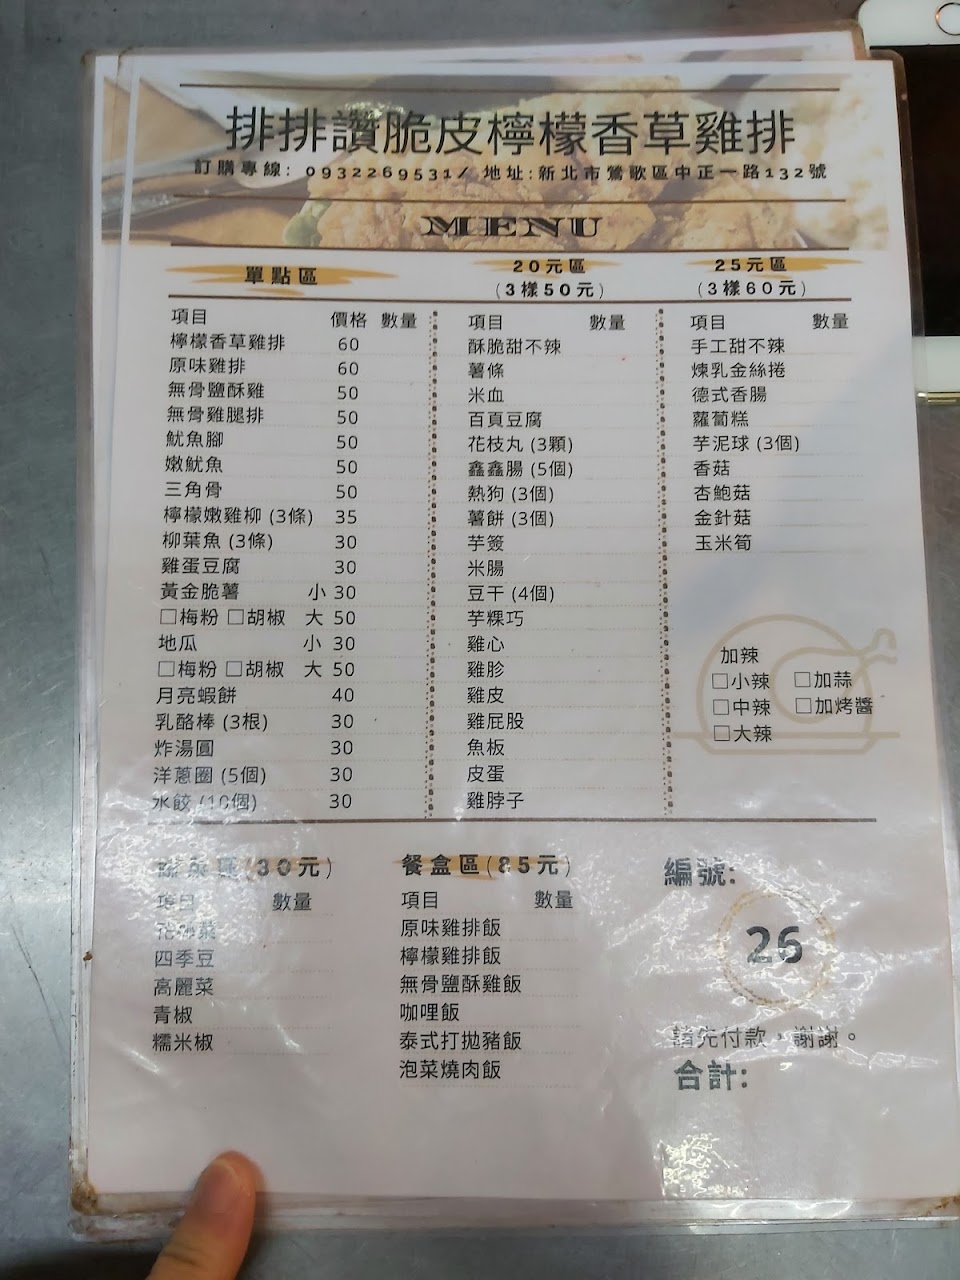 排排讚脆皮檸檬香草雞排
訂購專線: 0932269531/ 地址:新北市鶯歌區中正一路132號
MENU
單點區
項目 價格 數量
檸檬香草雞排 60
原味雞排 60
無骨鹽酥雞 50
無骨雞腿排 50
魷魚腳 50
嫩魷魚 50
三角骨 50
檸檬嫩雞柳 (3條) 35
柳葉魚 (3條) 30
雞蛋豆腐 30
黃金脆薯 小 30
□梅粉 □胡椒 大 50
地瓜 小 30
□梅粉 □胡椒 大 50
月亮蝦餅 40
乳酪棒 (3根) 30
炸湯圓 30
洋蔥圈 (5個) 30
水餃 (10個) 30
20元區
(3樣50元)
項目 數量
酥脆甜不辣
薯條
米血
百頁豆腐
花枝丸 (3顆)
鑫鑫腸 (5個)
熱狗 (3個)
薯餅 (3個)
芋簽
米腸
豆干 (4個)
芋粿巧
雞心
雞胗
雞皮
雞屁股
魚板
皮蛋
雞脖子
25元區
(3樣60元)
項目 數量
手工甜不辣
煉乳金絲捲
德式香腸
蘿蔔糕
芋泥球 (3個)
香菇
杏鮑菇
金針菇
玉米筍
加辣
□小辣 □加蒜
□中辣 □加烤醬
□大辣
(30元)
項目 數量
四季豆
高麗菜
青椒
糯米椒
餐盒區(85元)
項目 數量
原味雞排飯
檸檬雞排飯
無骨鹽酥雞飯
咖哩飯
泰式打拋豬飯
泡菜燒肉飯
編號:
26
請先付款，謝謝。
合計: